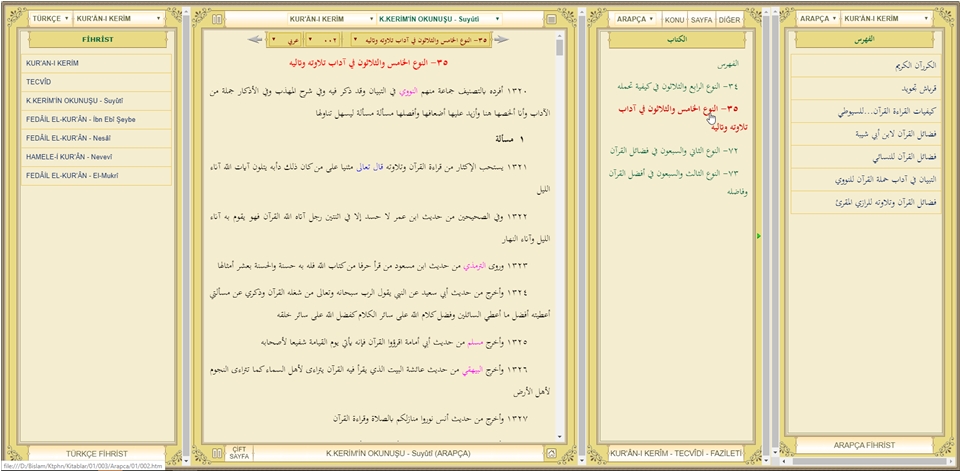 TÜRKÇE KUR'ÂN-I KERİM
FİHRİST
KUR'AN-I KERİM
TECVÎD
K.KERİM'İN OKUNUŞU - Suyûtî
FEDÂİL EL-KUR'ÂN - İbn Ebî Şeybe
FEDÂİL EL-KUR'ÂN - Nesâî
HAMELE-İ KUR'ÂN - Nevevî
FEDÂİL EL-KUR'ÂN - El-Mukrî
TÜRKÇE FİHRİST
file:///D:/Bislam/Ktphn/Kitablar/01/003/Arapca/01/002.htm
KUR'ÂN-I KERİM K.KERİM'İN OKUNUŞU - Suyûtî
٣٥- النوع الخامس والثلاثون في آداب تلاوته وتاليه ٠٠٢ عربي
٣٥- النوع الخامس والثلاثون في آداب تلاوته وتاليه
١٣٢٠ أفرده بالتصنيف جماعة منهم النووي في التبيان وقد ذكر فيه وفي شرح المهذب وفي الأذكار جملة من
الآداب وأنا ألخصها هنا وأزيد عليها أضعافها وأفصلها مسألة مسألة ليسهل تناولها
١ مسألة
١٣٢١ يستحب الإكثار من قراءة القرآن وتلاوته قال تعالى مثنيا على من كان ذلك دأبه يتلون آيات الله آناء
الليل
١٣٢٢ وفي الصحيحين من حديث ابن عمر لا حسد إلا في اثنتين رجل آتاه الله القرآن فهو يقوم به آناء
الليل وآناء النهار
١٣٢٣ وروى الترمذي من حديث ابن مسعود من قرأ حرفا من كتاب الله فله به حسنة والحسنة بعشر أمثالها
١٣٢٤ وأخرج من حديث أبي سعيد عن النبي يقول الرب سبحانه وتعالى من شغله القرآن وذكري عن مسألتي
أعطيته أفضل ما أعطي السائلين وفضل كلام الله على سائر الكلام كفضل الله على سائر خلقه
١٣٢٥ وأخرج مسلم من حديث أبي أمامة اقرؤوا القرآن فإنه يأتي يوم القيامة شفيعا لأصحابه
١٣٢٦ وأخرج البيهقي من حديث عائشة البيت الذي يقرأ فيه القرآن يتراءى لأهل السماء كما تتراءى النجوم
لأهل الأرض
١٣٢٧ وأخرج من حديث أنس نوروا منازلكم بالصلاة وقراءة القرآن
ÇİFT
SAYFA
K.KERİM'İN OKUNUŞU - Suyûtî (ARAPÇA)
ARAPÇA KONU SAYFA DİĞER
الكتاب
الفهرس
٣٤- النوع الرابع والثلاثون في كيفية تحمله
٣٥- النوع الخامس والثلاثون في آداب
تلاوته وتاليه
٧٢- النوع الثاني والسبعون في فضائل القرآن
٧٣- النوع الثالث والسبعون في أفضل القرآن
وفاضله
KUR'ÂN-I KERİM - TECVÎDİ - FAZİLETİ
ARAPÇA KUR'ÂN-I KERİM
الفهرس
الكررآن الكريم
قرباش تجويد
كيفيات القراءة القرآن...للسيوطي
فضائل القرآن لابن أبي شيبة
فضائل القرآن للنسائي
التبيان في آداب حملة القرآن للنووي
فضائل القرآن وتلاوته للرازي المقرئ
ARAPÇA FİHRİST